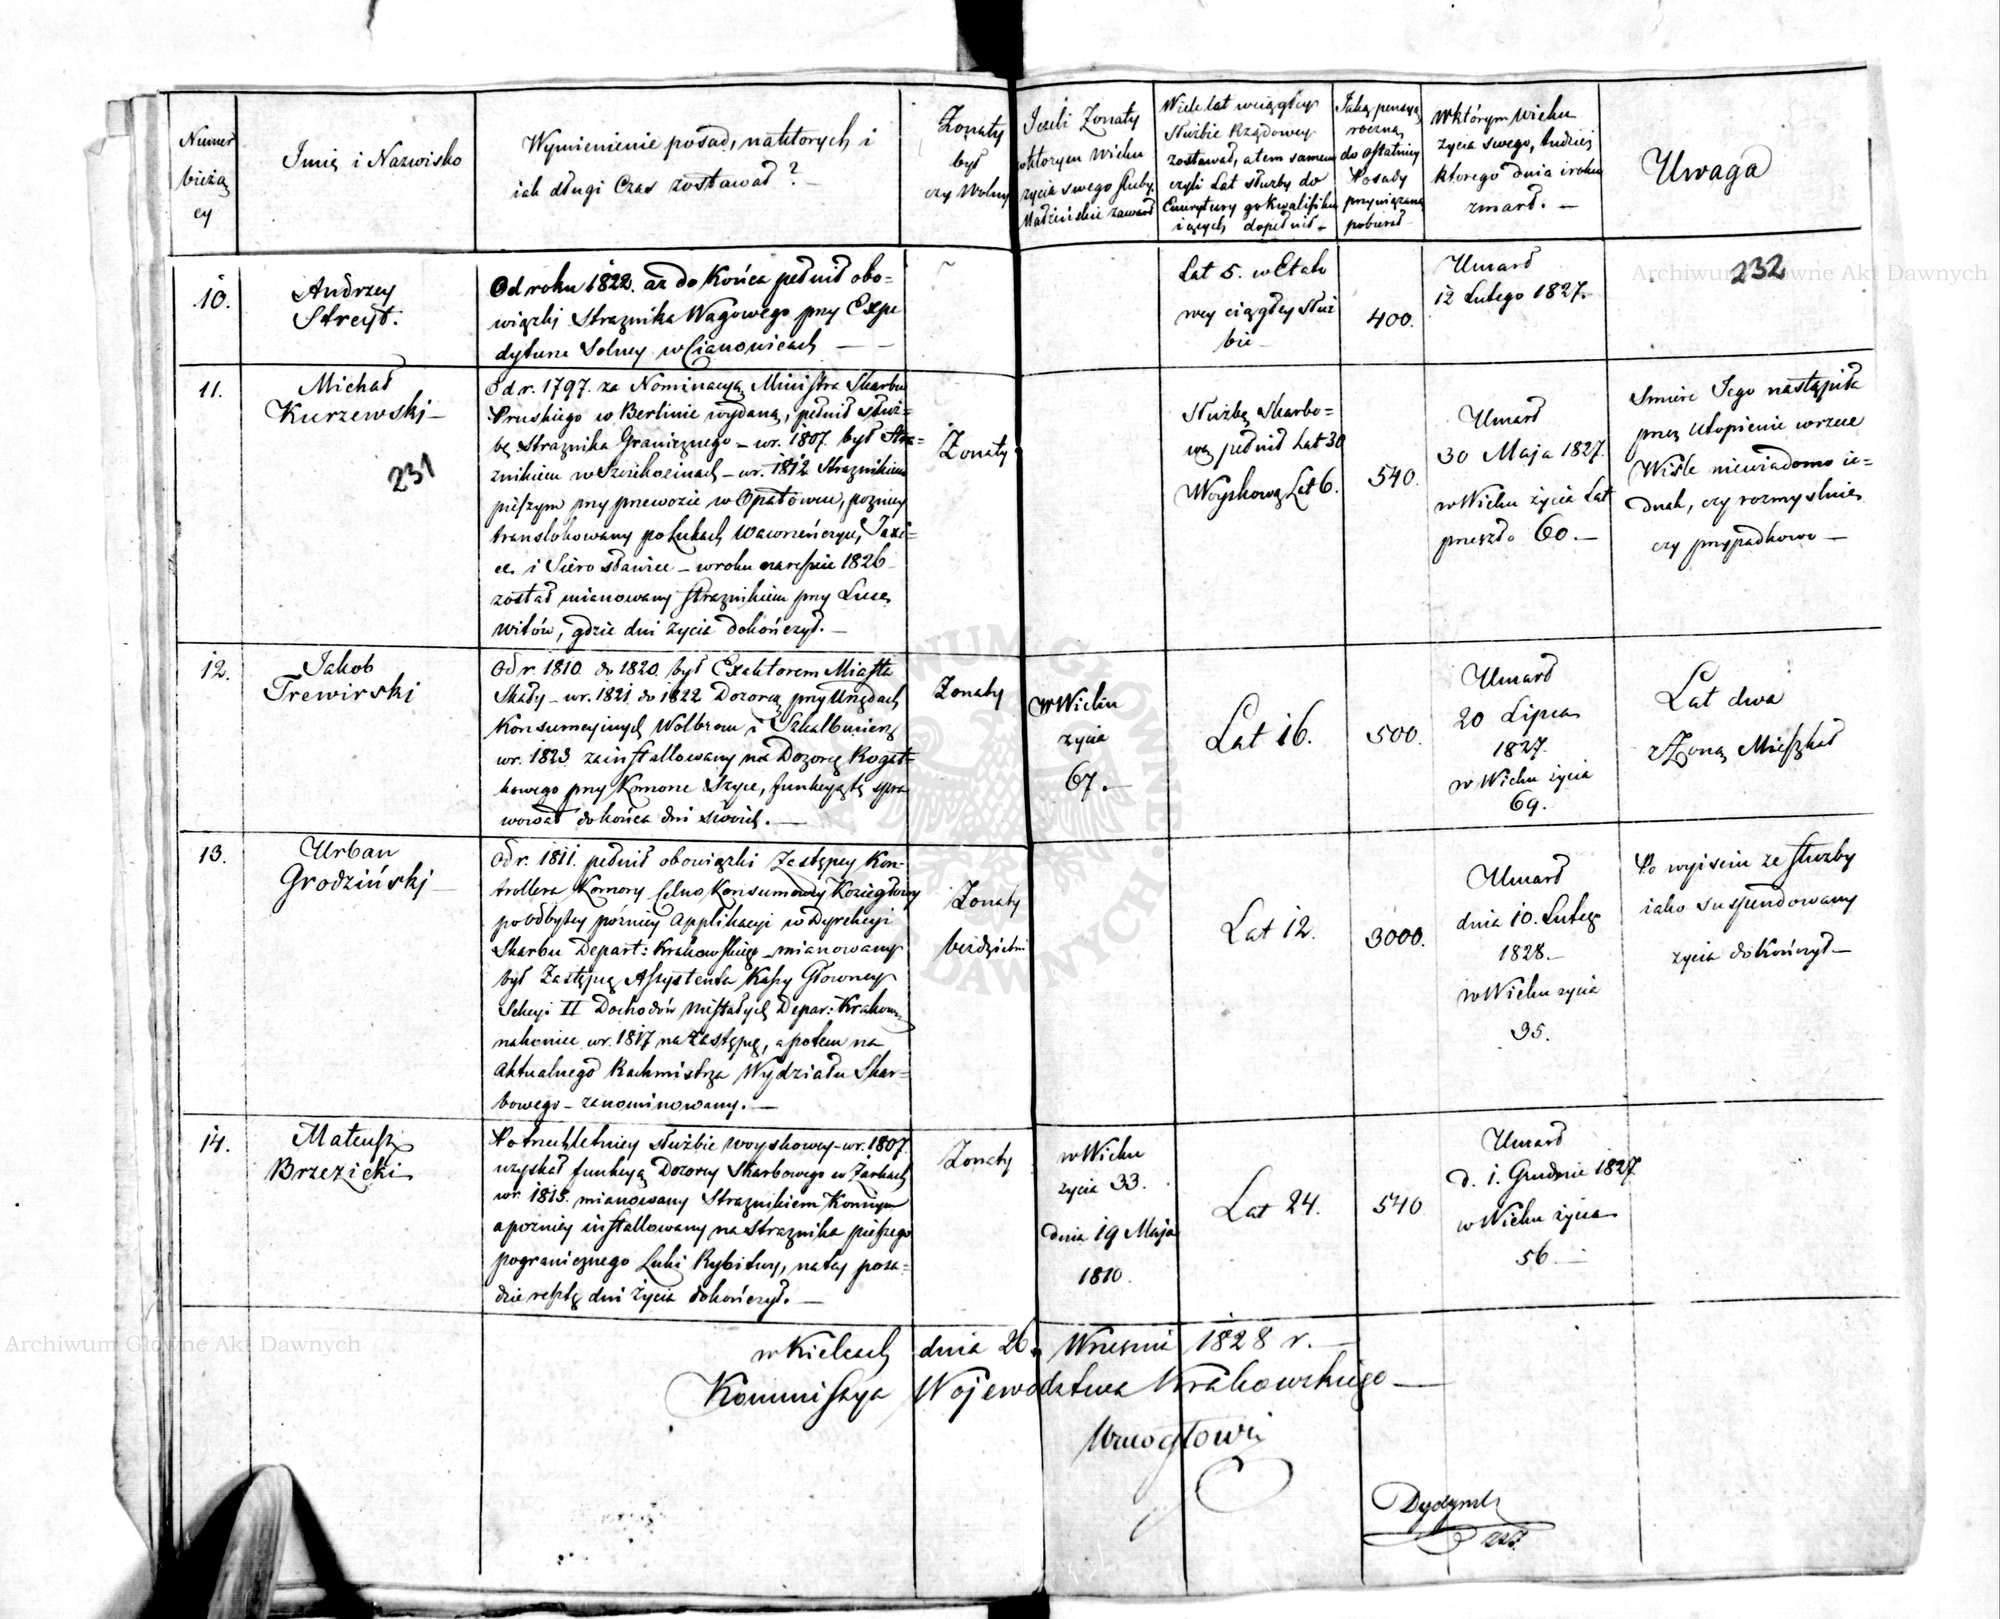 Numer
bieżą
cy
Imię i Nazwisko
Wymienienie posad, na których i
iak długi Czas zostawał? —
Żonaty
był
czy Wolny
Jeżeli Żonaty
w którym Wieku
życia swego śluby
Małżeńskie zawarł
Wiele lat w ciągłey
Służbie Rządowey
zostawał, a tem samem
czyli Lat służby do
Emerytury go kwalifiku
iących dopełnił —
Jaką pensyą
roczną
do ostatniey
Posady
przywiązaną
pobierał
W którym wieku
życia swego, tudzież
którego dnia i roku
zmarł. —
Uwaga
10.
Andrzey
Streyt.
Od roku 1822. aż do Końca pełnił obo=
wiązki Strażnika Wagowego przy Expe
dyturze Solney w Cianowicach —
Lat 5. w Etato
wey ciągłey służ
bie —
400.
Umarł
12 Lutego 1827.
232
11.
Michał
Kurzewski —
231
Od r. 1797. za Nominacyą Ministra Skarbu
Pruskiego w Berlinie wydaną, pełnił służ=
bę Strażnika Granicznego — w r. 1807. był Stra=
żnikiem w Szreniawach — w r. 1812 Strażnikiem
pieszym przy przewozie w Opatowcu, poźniey
translokowany po Łukach Wawrzeńczyce, Jaxi=
ce i Sierosławice — w roku nareszcie 1826
został mianowany strażnikiem przy Luce
Witów, gdzie dni życia dokończył. —
Żonaty
Służbę Skarbo=
wą pełnił Lat 30
Woyskową Lat 6.
540.
Umarł
30 Maja 1827.
w Wieku życia Lat
przeszło 60. —
Śmierć Jego nastąpiła
przez utopienie w rzece
Wiśle niewiadomo ie=
dnak, czy rozmyślnie
czy przypadkowo —
12.
Jakob
Trewirski
Od r. 1810 do 1820. był Exaktorem Miasta
Skały — w r. 1821 do 1822 Dozorcą przy Urzędach
Konsumcyinych Wolbrom i Skalbmierz
w r. 1823 zainstallowany na Dozorcę Rogat=
kowego przy Komorze Szyce, funkcyą tę spra
wował do końca dni swoich. —
Żonaty
w Wieku
życia
67. —
Lat 16.
500.
Umarł
20 Lipca
1827.
w Wieku życia
69.
Lat dwa
z Żoną Mieszkał
13.
Urban
Grodziński —
Od r. 1811. pełnił obowiązki Zastępcy Kon=
trollera Komory Celno Konsumowey Koziegłowy
po odbytey poźniey Applikacyi w Dyrekcyi
Skarbu Depart: Krakowskiego — mianowany
był Zastępcą Assystenta Kassy Głowney
Sekcyi II Dochodów niestałych Depar: Krakows.
nakoniec w r. 1817 na Zastępcę, a potem na
Aktualnego Rachmistrza Wydziału Skar=
bowego — zanominowany. —
Żonaty
bezdzietni
Lat 12.
3000.
Umarł
dnia 10. Lutego
1828. —
w Wieku życia
35.
Po wyiściu ze służby
iako suspendowany
życia dokończył —
14.
Mateusz
Brzezicki
Po trzechletniey służbie woyskowey — w r. 1807.
uzyskał funkcyą Dozorcy Skarbowego w Żarkach
w r. 1815. mianowany Strażnikiem Konnym
a poźniey installowany na Strażnika pieszego
pogranicznego Luki Rybitwy, na tey posa=
dzie resztę dni życia dokończył. —
Żonaty
w Wieku
życia 33.
dnia 19 Maja
1810.
Lat 24.
540
Umarł
d. 1. Grudnia 1827.
w Wieku życia
56. —
w Kielcach dnia 26. Wrześnie 1828 r. —
Kommissya Województwa Krakowskiego —
Archiwum Główne Akt Dawnych
Archiwum Główne Akt Dawnych
ARCHIWUM GŁÓWNE AKT DAWNYCH